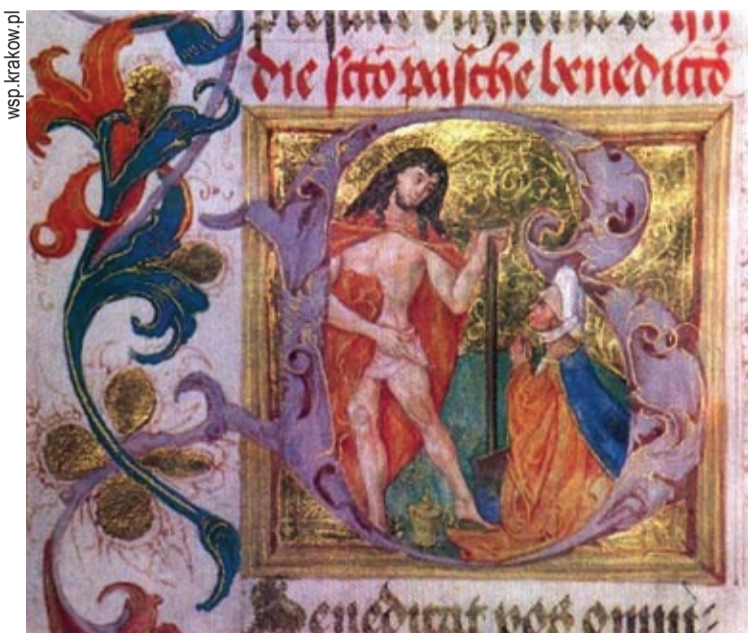 wsp.krakow.pl
die scto pasche benedictō
Benedicat vos omni-